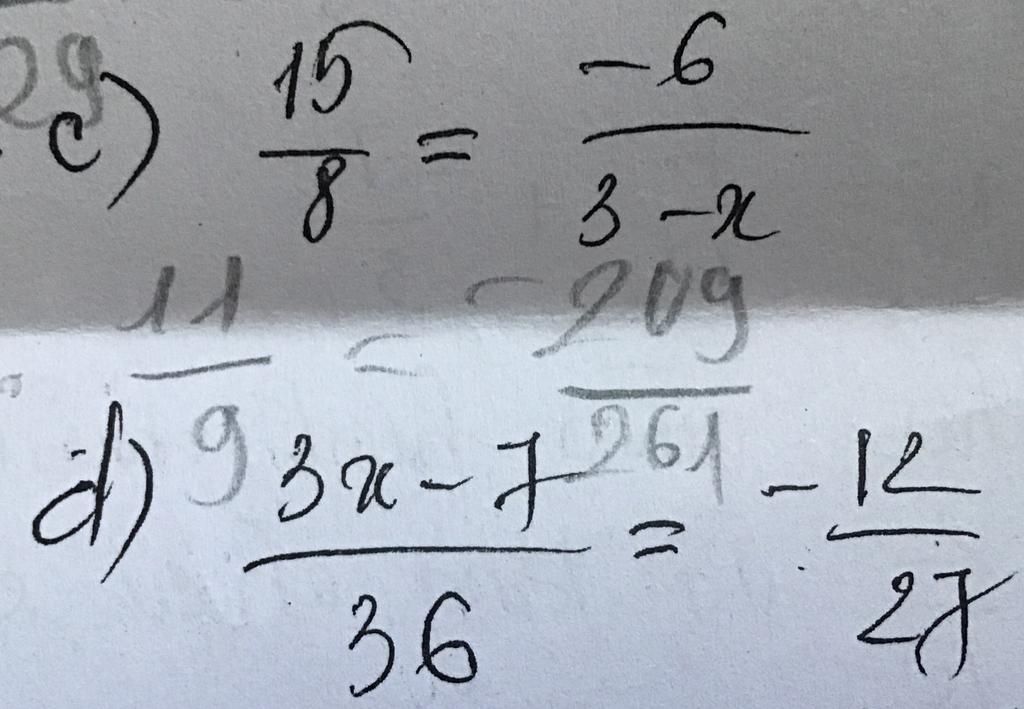 29
c) 15/8 = -6/(3-x)
11/9 = -209/261
d) (3x-7)/36 = -12/27